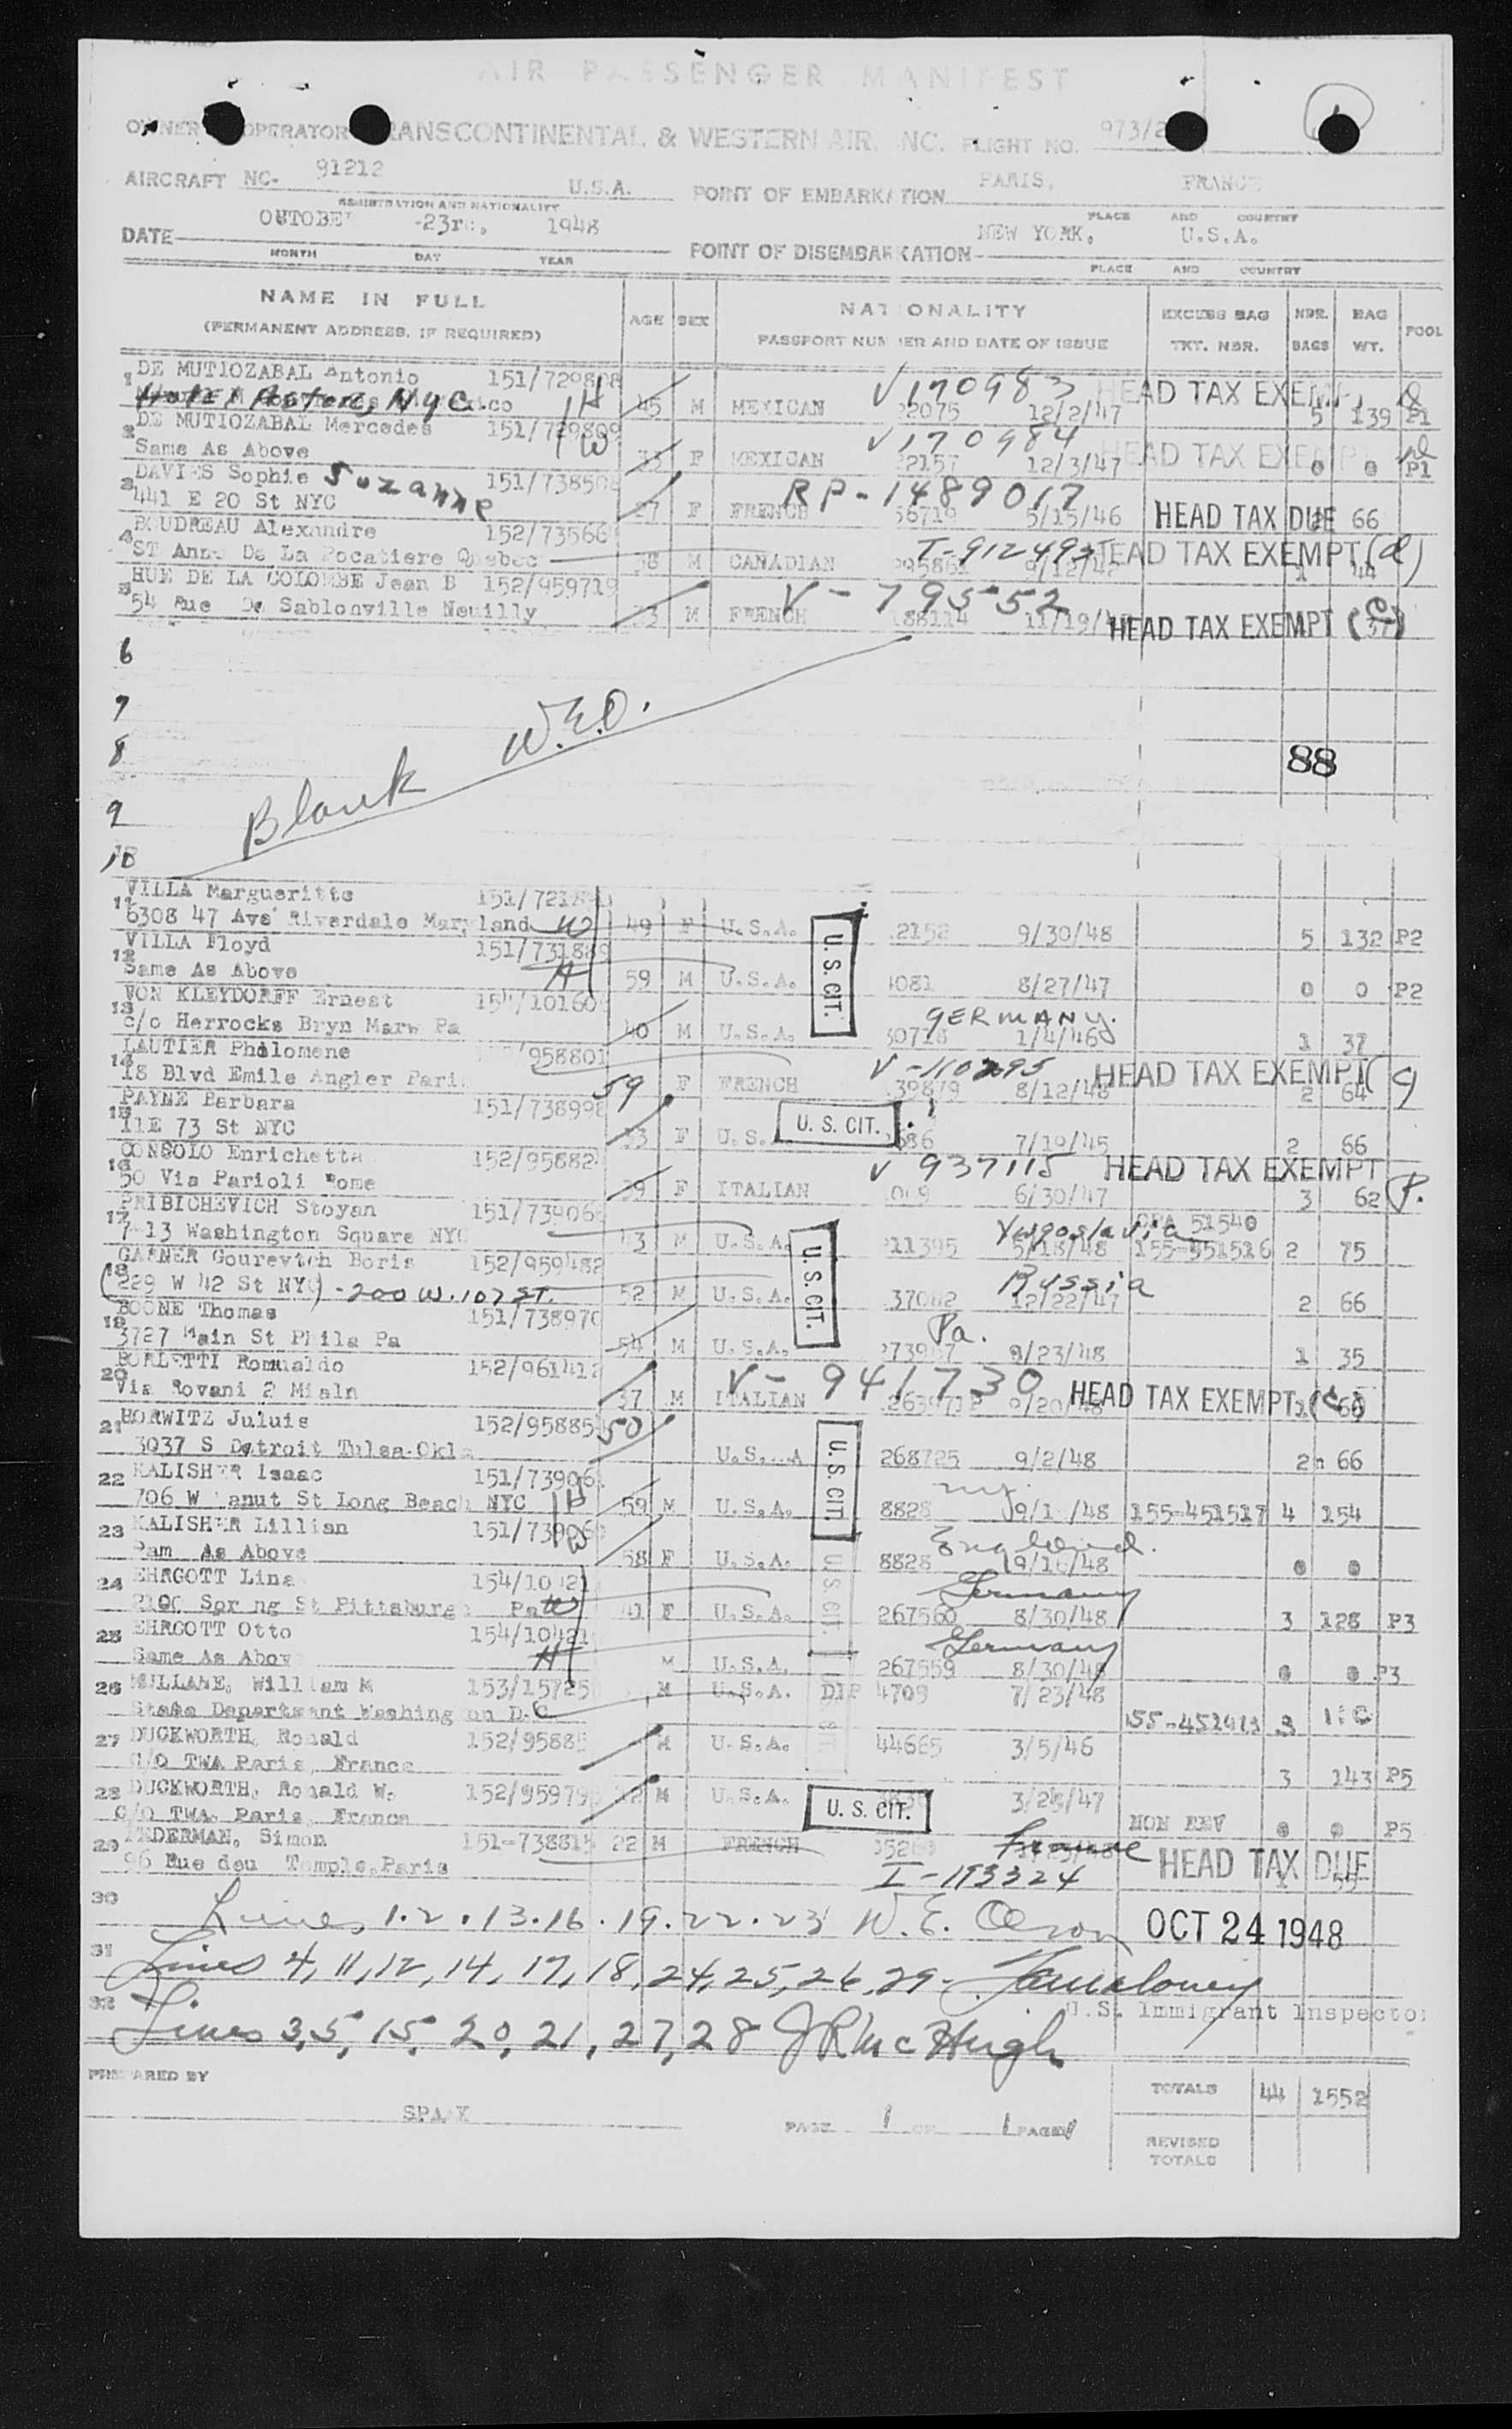 AIR PASSENGER MANIFEST
OWNER OPERATOR TRANSCONTINENTAL & WESTERN AIR, INC. FLIGHT NO. 973/2
AIRCRAFT NC- 91212 U.S.A. POINT OF EMBARKATION PARIS, FRANCE
REGISTRATION AND NATIONALITY PLACE AND COUNTRY
DATE OCTOBER 23rd, 1948 POINT OF DISEMBARKATION NEW YORK, U.S.A.
MONTH DAY YEAR PLACE AND COUNTRY
NAME IN FULL AGE SEX NATIONALITY EXCESS BAG NBR. BAG POOL
(PERMANENT ADDRESS, IF REQUIRED) PASSPORT NUMBER AND DATE OF ISSUE TKT. NBR. BAGS WT.
DE MUTIOZABAL Antonio 151/729808 V170983 HEAD TAX EXEMPT d
1 Hotel Astor, NYC. H 45 M MEXICAN 22075 12/2/47 5 139 P1
DE MUTIOZABAL Mercedes 151/729809 V170984 HEAD TAX EXEMPT d
2 Same As Above W 33 F MEXICAN 2215 12/3/47 0 0 P1
DAVIES Sophie Suzanne 151/738508 RP-1489017
3 441 E 20 St NYC 27 F FRENCH 56719 5/15/46 HEAD TAX DUE 66
BOUDREAU Alexandre 152/73566 I-912493 HEAD TAX EXEMPT (d)
4 ST Anne De La Pocatiere Quebec 38 M CANADIAN 29586 1 44
HUE DE LA COLOMBE Jean B 152/959719 V-795552
5 54 Rue De Sablonville Neuilly 33 M FRENCH 88114 11/19/4 HEAD TAX EXEMPT (C)
6
7
8 88
Blank W.E.O.
9
10
VILLA Margueritte 151/721
11 6308 47 Ave Riverdale Maryland W 49 F U.S.A. 2152 9/30/48 5 132 P2
VILLA Floyd 151/731889
12 Same As Above H 59 M U.S.A. U.S. CIT. 4081 8/27/47 0 0 P2
VON KLEYDORFF Ernest 154/10160 GERMANY.
13 c/o Herrocks Bryn Marw Pa 40 M U.S.A. 30718 1/4/46 1 37
LAUTIER Philomene 958801 V-110295 HEAD TAX EXEMPT (C)
14 18 Blvd Emile Angier Pari 59 F FRENCH 39879 8/12/48 2 64
PAYNE Barbara 151/738998 U. S. CIT.
15 11E 73 St NYC 33 F U.S. 686 7/19/45 2 66
CONSOLO Enrichetta 152/95882 V 937115 HEAD TAX EXEMPT
16 50 Via Parioli Rome 39 F ITALIAN 6/30/47 3 62 P.
PRIBICHEVICH Stoyan 151/73906 Yugoslavia 51540
17 7-13 Washington Square NYC 43 M U.S.A. 211395 5/18/48 155-451516 2 75
GARNER Gourevitch Boris 152/959482 U.S. CIT. Russia
18 (229 W 42 St NYC) - 200 W. 107 ST. 52 M U.S.A. 37082 12/22/47 2 66
BOONE Thomas 151/738970 Pa.
19 3727 Main St Phila Pa 54 M U.S.A. 9/23/48 1 35
BORLETTI Romualdo 152/961412 V- 941730 HEAD TAX EXEMPT (C)
20 Via Rovani 2 Mialn 37 M ITALIAN 9/20/48 60
HORWITZ Juluis 152/95885 50
21 3037 S Detroit Tulsa Okla U.S. A 268725 9/2/48 2 66
22 KALISHER Isaac 151/73906 U.S. CIT. ny.
706 W Lanut St Long Beach NYC H 59 M U.S.A. 8828 9/1 /48 155-451517 4 154
23 KALISHER Lillian 151/73906 England.
Sam As Above W 58 F U.S.A. 8828 9/16/48 0 0
24 EHRGOTT Lina 154/10421 Germany
2100 Spring St Pittsburg Pa W 41 F U.S.A. U.S. CIT. 267560 8/30/48 3 128 P3
25 EHRGOTT Otto 154/10421 Germany
Same As Above H M U.S.A. 267559 8/30/48 0 0 P3
26 MULLANE, William M 153/15725 M U.S.A. DIP 4709 7/23/48
State Department Washington D.C. 3
27 DUCKWORTH, Ronald 152/95885 M U.S.A. 44665 3/5/46
C/O TWA Paris, France 3 143 P5
28 DUCKWORTH, Ronald W. 152/95979 M U.S.A. U. S. CIT. 3/25/47
C/O TWA, Paris, France NON REV 0 0 P5
29 FEDERMAN, Simon 151-738815 22 M FRENCH France HEAD TAX DUE
96 Rue deu Temple, Paris I-193324
30 Lines 1.2.13.16.19.22.23 W. E. Olson OCT 24 1948
31 Lines 4, 11, 12, 14, 17, 18, 24, 25, 26, 29 -
32 U.S. Immigrant Inspector
Lines 3, 5, 15, 20, 21, 27, 28 J R McHugh
PREPARED BY TOTALS 44 1552
PAGE 1 OF 1 PAGES
REVISED
TOTALS